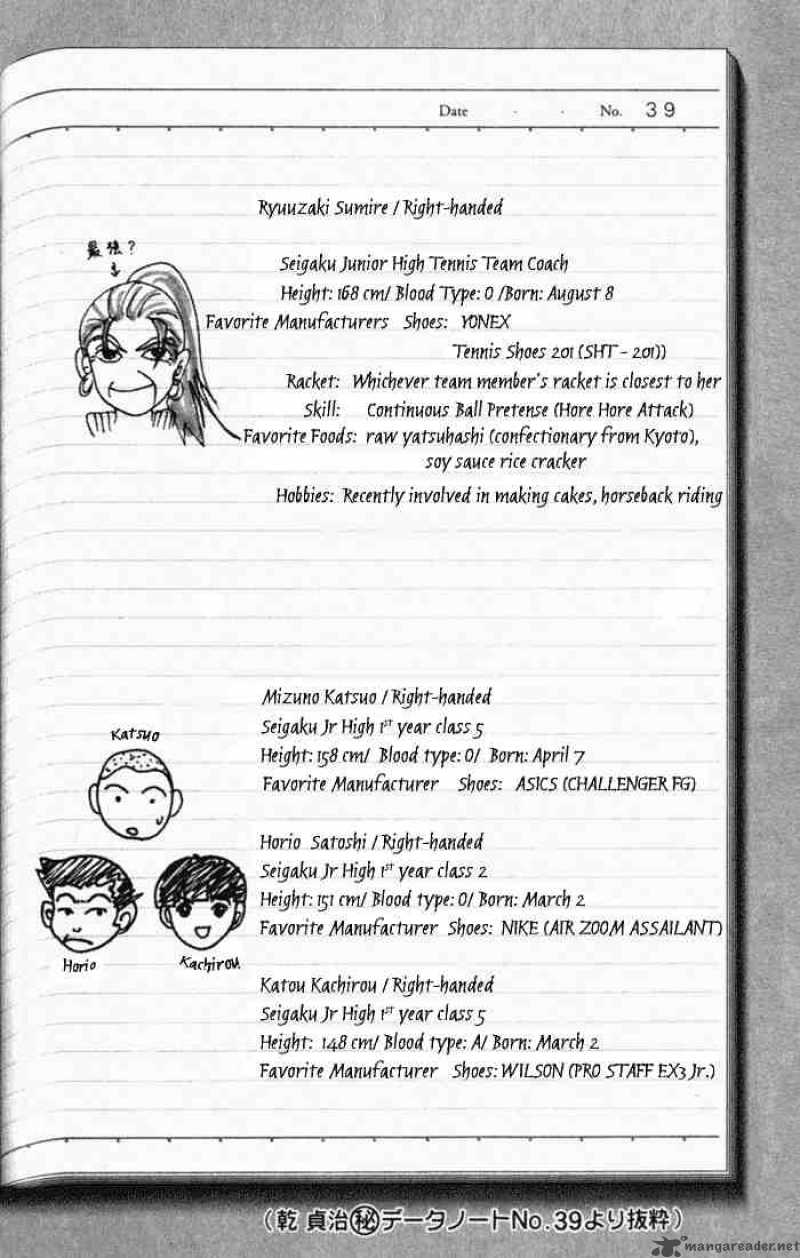 Date . . No. 39
Ryuuzaki Sumire / Right-handed
最強?
Seigaku Junior High Tennis Team Coach
Height: 168 cm/ Blood Type: O /Born: August 8
Favorite Manufacturers Shoes: YONEX
Tennis Shoes 201 (SHT - 201))
Racket: Whichever team member's racket is closest to her
Skill: Continuous Ball Pretense (Hore Hore Attack)
Favorite Foods: raw yatsuhashi (confectionary from Kyoto),
soy sauce rice cracker
Hobbies: Recently involved in making cakes, horseback riding
Mizuno Katsuo / Right-handed
Seigaku Jr High 1st year class 5
Katsuo
Height: 158 cm/ Blood type: O/ Born: April 7
Favorite Manufacturer Shoes: ASICS (CHALLENGER FG)
Horio Satoshi / Right-handed
Seigaku Jr High 1st year class 2
Height: 151 cm/ Blood type: O/ Born: March 2
Favorite Manufacturer Shoes: NIKE (AIR ZOOM ASSAILANT)
Horio
Kachirou
Katou Kachirou / Right-handed
Seigaku Jr High 1st year class 5
Height: 148 cm/ Blood type: A/ Born: March 2
Favorite Manufacturer Shoes: WILSON (PRO STAFF EX3 Jr.)
(乾 貞治㊙データノートNo.39より抜粋)
mangareader.net